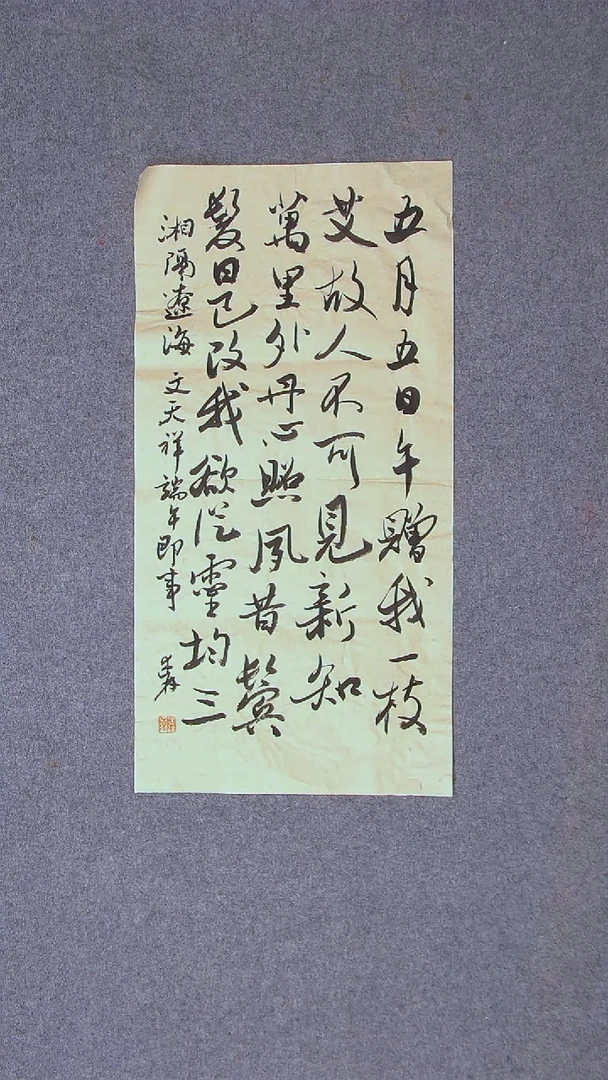 五月五日午贈我一枝
艾故人不可見新知
萬里外丹心照夙昔鬢
髮日已改我欲從靈均三
湘隔遼海 文天祥端午即事